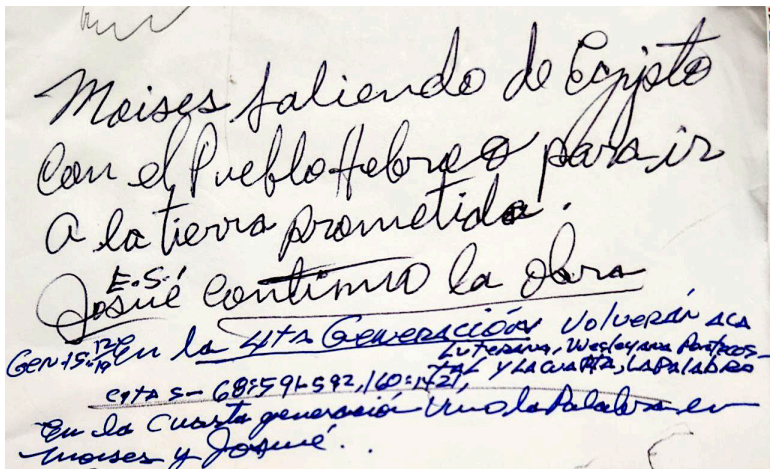 Moises saliendo de Egipto
Con el Pueblo Hebreo para ir
a la tierra prometida.
E.S.
Josué continuo la obra
Gen-15: en la 4ta Generación Volverán acá
Luterana, Wesleyana Pentecos-
tal y la cuarta, la Palabra
citas- 68:591-592, 160:
en la Cuarta generación Vino la Palabra en
Moises y Josué.